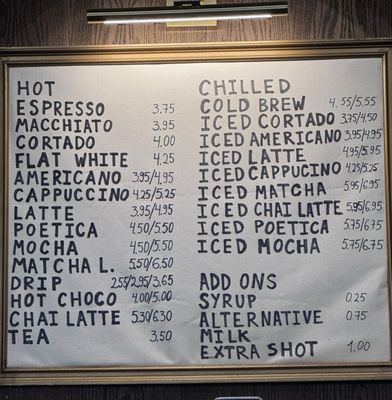 HOT
ESPRESSO 3.75
MACCHIATO 3.95
CORTADO 4.00
FLAT WHITE 4.25
AMERICANO 3.95/4.95
CAPPUCCINO 4.25/5.25
LATTE 3.95/4.95
POETICA 4.50/5.50
MOCHA 4.50/5.50
MATCHA L. 5.50/6.50
DRIP 2.55/2.95/3.65
HOT CHOCO 4.00/5.00
CHAI LATTE 5.30/6.30
TEA 3.50
CHILLED
COLD BREW 4.55/5.55
ICED CORTADO 3.75/4.50
ICED AMERICANO 3.95/4.95
ICED LATTE 4.95/5.95
ICED CAPPUCINO 4.25/5.25
ICED MATCHA 5.95/6.95
ICED CHAI LATTE 5.95/6.95
ICED POETICA 5.75/6.75
ICED MOCHA 5.75/6.75
ADD ONS
SYRUP 0.25
ALTERNATIVE 0.75
MILK
EXTRA SHOT 1.00